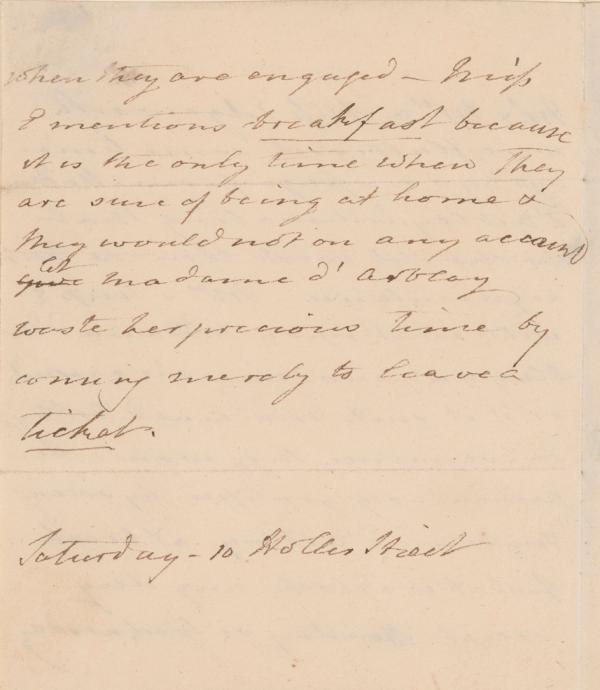 when they are engaged – Miss
E mentions breakfast because
it is the only time when they
are sure of being at home &
they would not on any account
give let madame d'Arblay
waste her precious time by
coming merely to leave a
ticket.
Saturday – 10 Holles Street